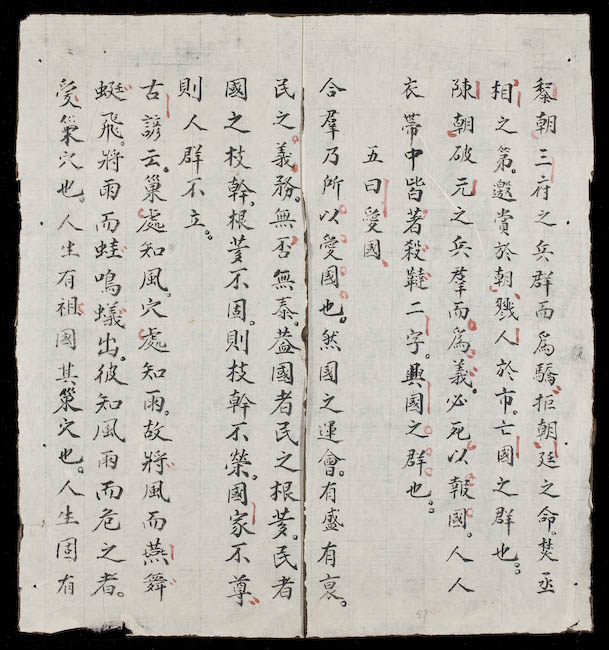 黎朝三府之兵群而爲驕拒朝廷之命。焚丞
相之第。邀賞於朝、戮人於市。亡國之群也。
陳朝破元之兵羣而爲義。必死以報國。人人
衣帶中皆著殺韃二字。興國之群也。
五曰愛國、
合羣乃所以愛國也。然國之運會。有盛有衰。
民之義務。無否無泰。蓋國者民之根荄。民者
國之枝幹、根荄不固。則枝幹不榮。國家不尊
則人群不立。
古諺云。巢處知風。穴處知雨。故將風而燕舞
蜓飛。將雨而蛙鳴蟻出。彼知風雨而危之者。
愛巢穴也。人生有祖國其巢穴也。人生固有